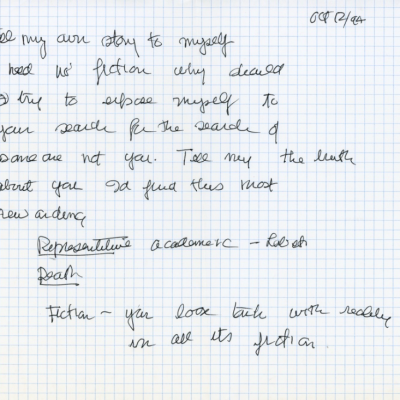 Oct 12/
my own story to myself
need no fiction why should
try to expose myself to
your search for the search of
someone not you. Tell me the truth
about you I'd find this most
rewarding
Representitive academic -
Death
Fiction - you lose touch with reality
in all its fiction.